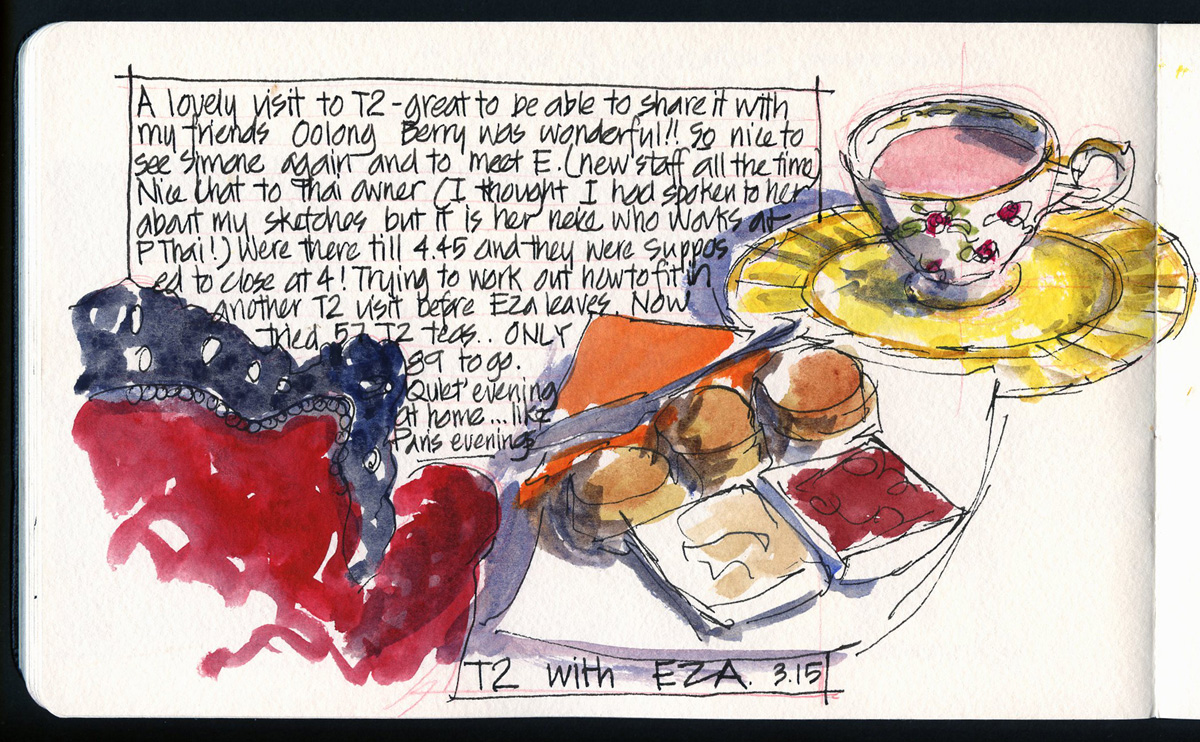 A lovely visit to T2 - great to be able to share it with
my friends Oolong Berry was wonderful!! So nice to
see Simone again and to meet E. (new staff all the time)
Nice chat to Thai owner (I thought I had spoken to her
about my sketches but it is her neice who works at
P Thai!) Were there till 4.45 and they were suppos
ed to close at 4! Trying to work out how to fit in
another T2 visit before Eza leaves. Now
tried 57 T2 teas.. ONLY
89 to go.
Quiet evening
at home... like
Paris evenings
T2 with EZA. 3.15